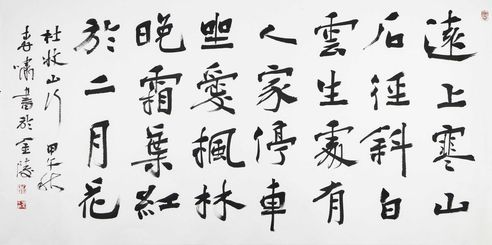 遠上寒山
石徑斜白
雲生處有
人家停車
坐愛楓林
晚霜葉紅
於二月花
杜牧山行 甲午秋
嘯書於金陵